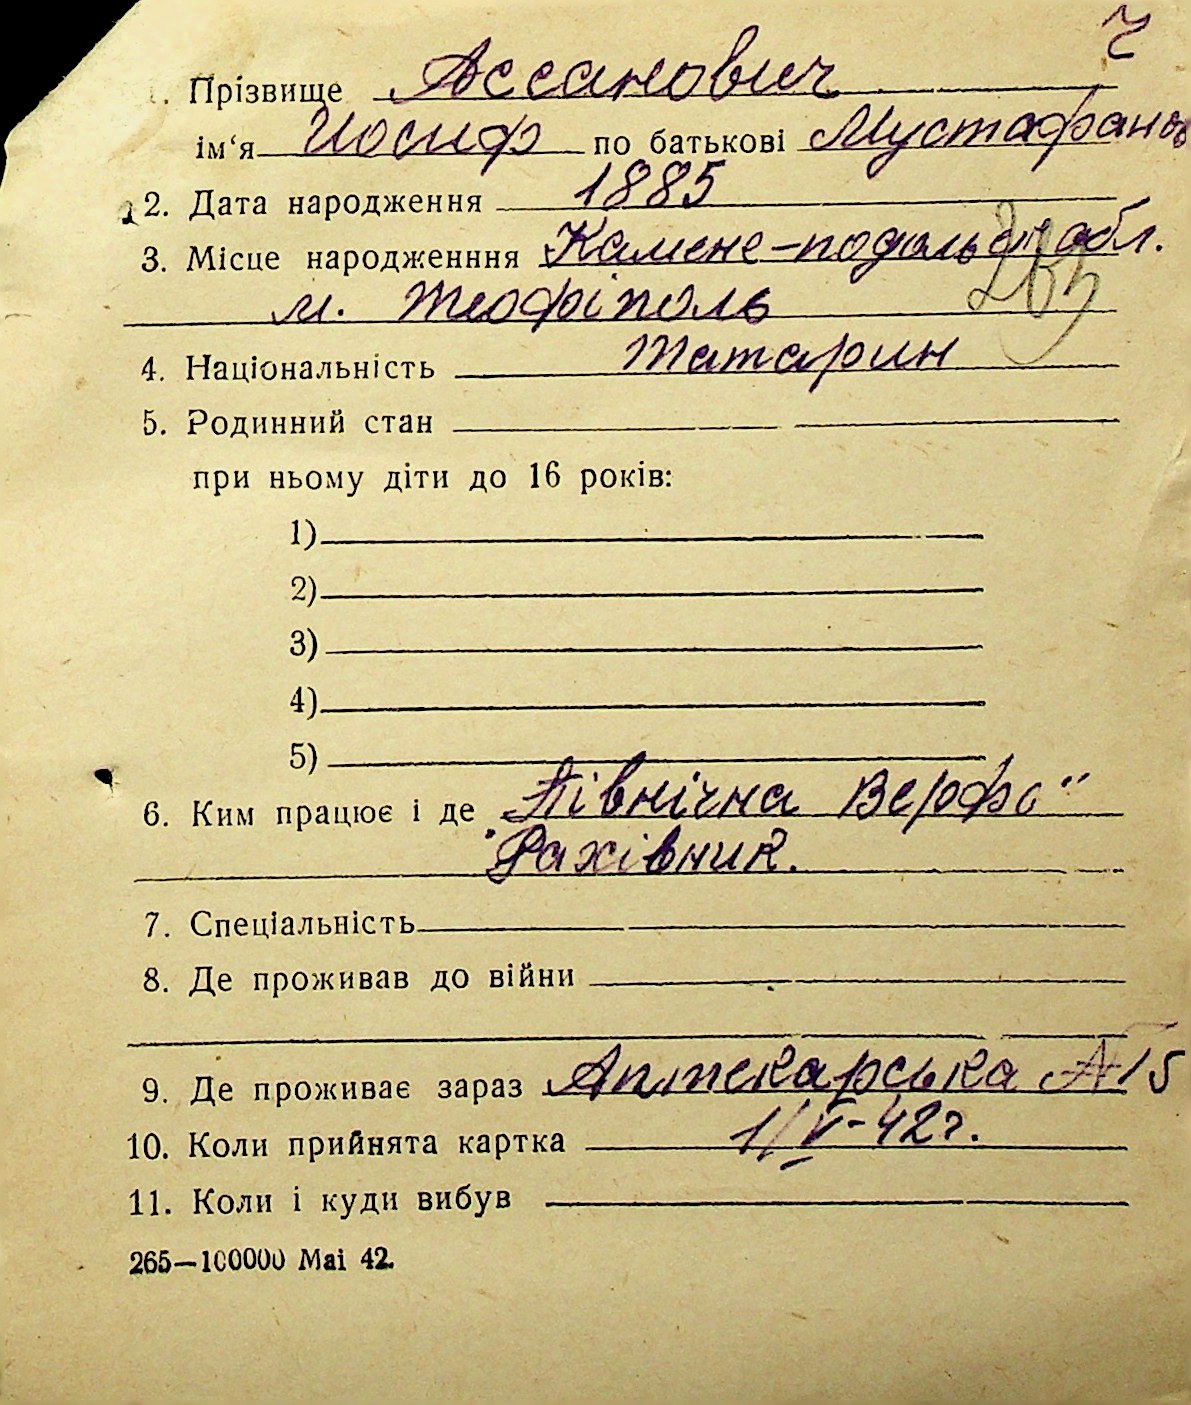 ч
1. Прізвище Ассанович
ім'я Иосиф по батькові Мустафанов
2. Дата народження 1885
3. Місце народженння Камене-подольск обл.
м. Теофіполь
4. Національність татарин
5. Родинний стан
при ньому діти до 16 років:
1)
2)
3)
4)
5)
6. Ким працює і де „Північна Верфь"
Рахівник.
7. Спеціальність
8. Де проживав до війни
9. Де проживає зараз Аптекарська №15
10. Коли прийнята картка 1/V-42г.
11. Коли і куди вибув
265—100000 Маі 42.